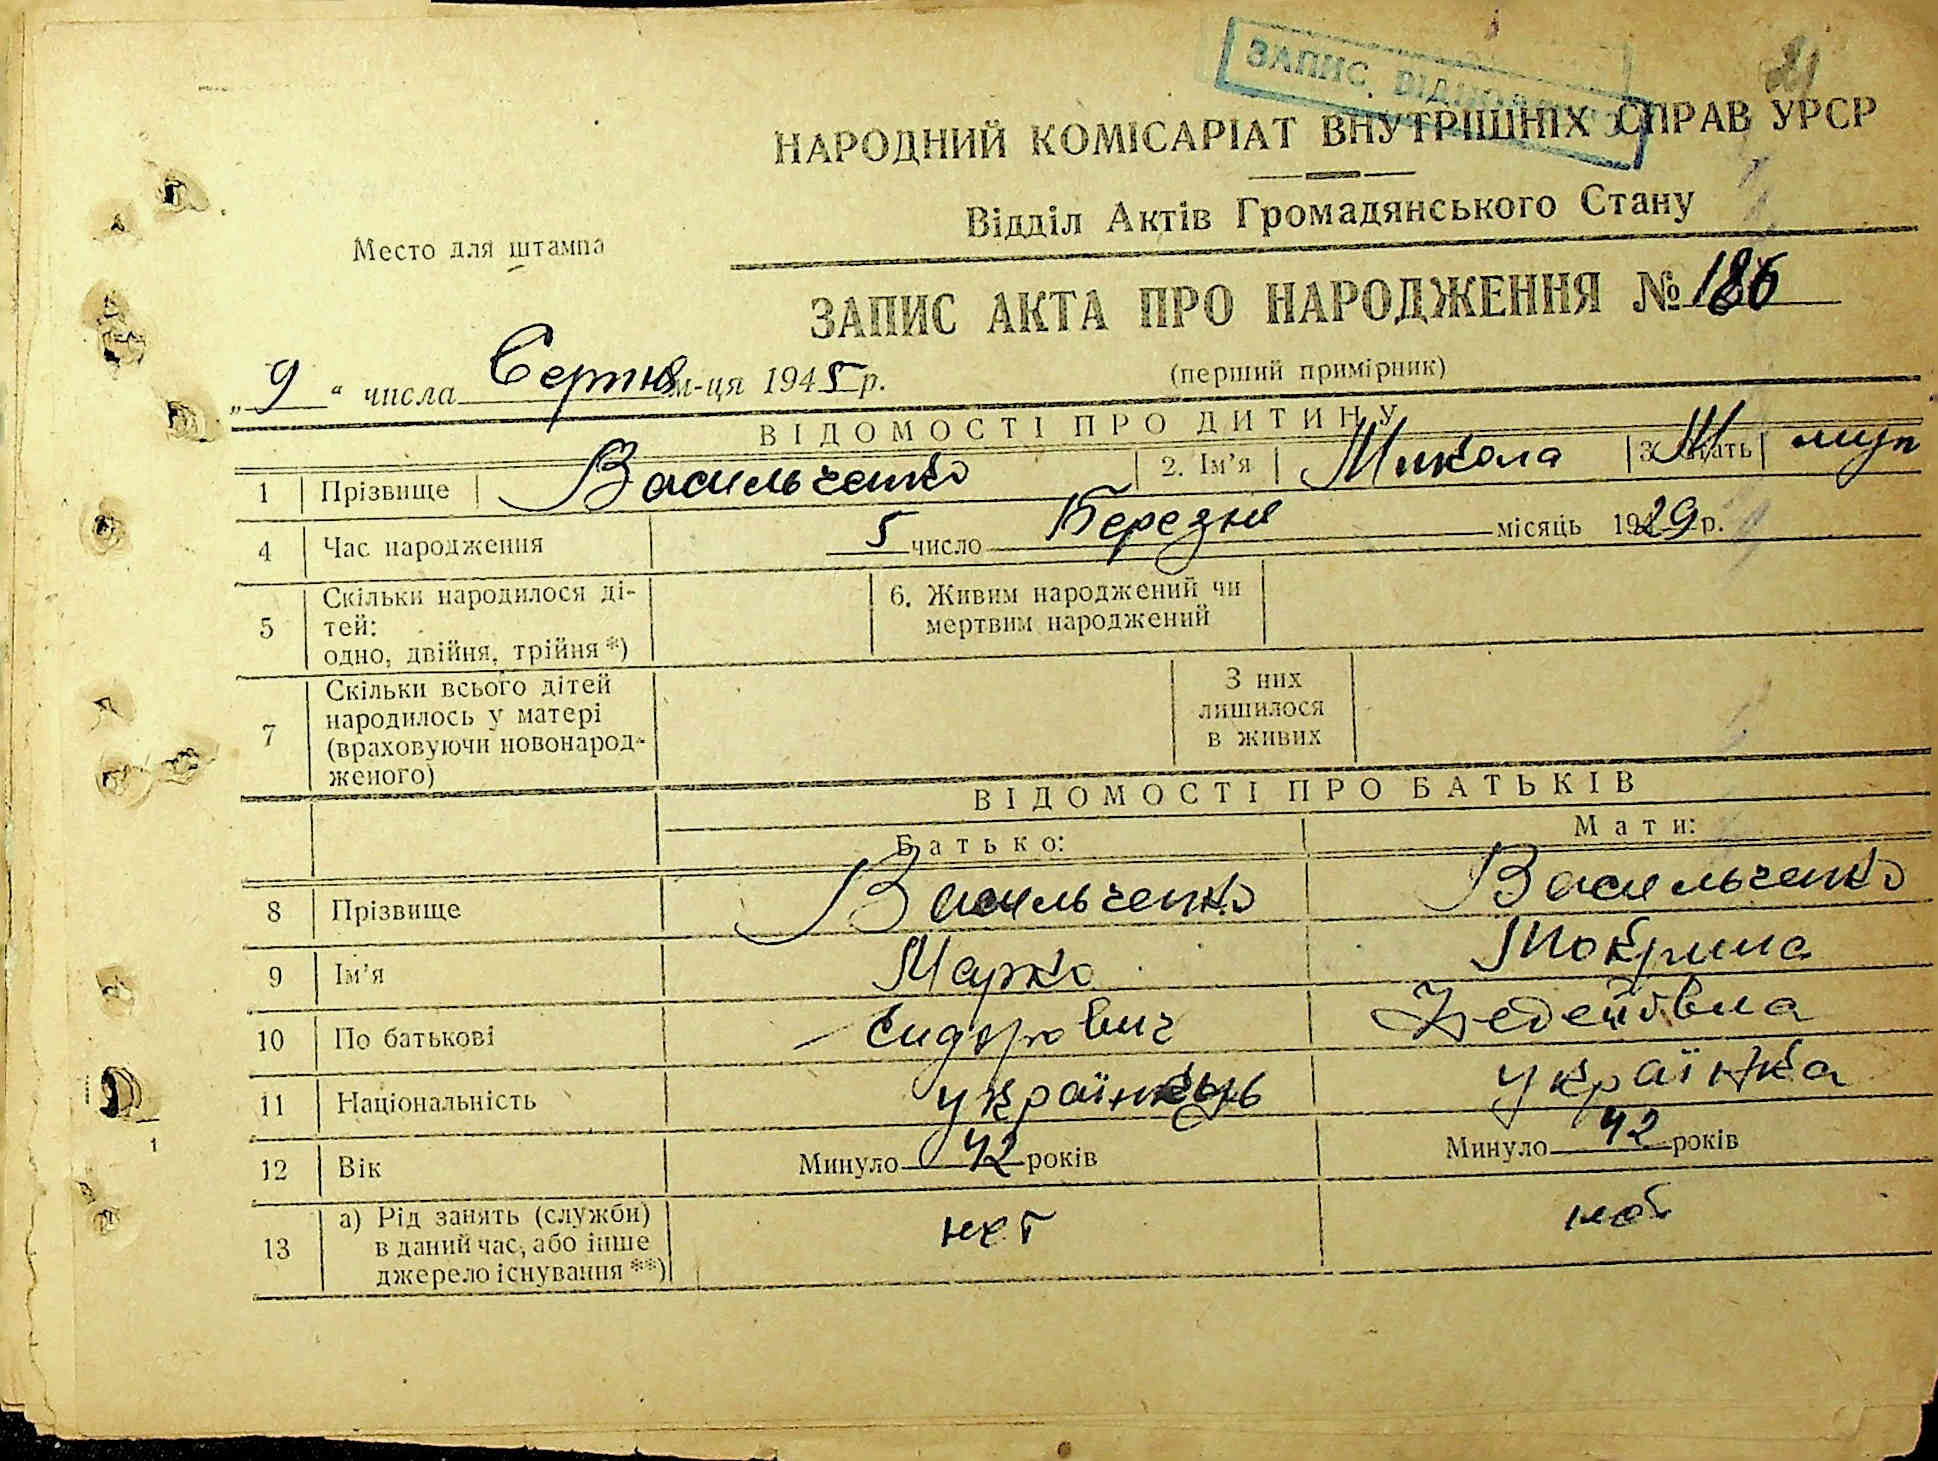 21
ЗАПИС.
НАРОДНИЙ КОМІСАРІАТ ВНУТРІШНІХ СПРАВ УРСР
Відділ Актів Громадянського Стану
Место для штампа
ЗАПИС АКТА ПРО НАРОДЖЕННЯ № 186
„ 9 “ числа Серпня м-ця 1945 р.
(перший примірник)
ВІДОМОСТІ ПРО ДИТИНУ
1 Прізвище Васильченко 2. Ім’я Микола
4 Час народження 5 число Березня місяць 1929 р.
5 Скільки народилося ді-
тей:
одно, двійня, трійня *)
6. Живим народжений чи
мертвим народжений
7 Скільки всього дітей
народилось у матері
(враховуючи новонарод-
женого)
З них
лишилося
в живих
ВІДОМОСТІ ПРО БАТЬКІВ
Батько: Мати:
8 Прізвище Васильченко Васильченко
9 Ім’я Марко Мокрина
10 По батькові Сидорович
11 Національність українець українка
12 Вік Минуло 42 років Минуло 42 років
13 а) Рід занять (служби)
в даний час, або інше
джерело існування **)
1